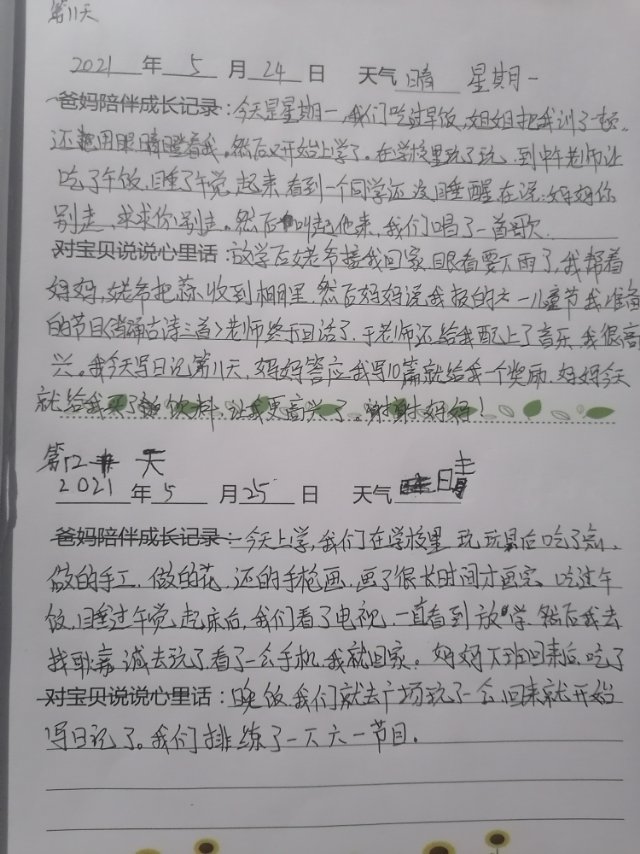 第11天
2021年5月24日 天气晴 星期一
爸妈陪伴成长记录:今天是星期一,我们吃过早饭,姐姐把我训了一顿,
还用眼睛瞪着我。然后又开始上学了。在学校里玩了玩,到中午老师让
吃了午饭,睡了午觉,起来,看到一个同学还没睡醒,在说:妈妈你
别走,求求你别走。然后叫起他来,我们唱了一首歌.
对宝贝说说心里话:放学后姥爷接我回家,眼看要下雨了,我帮着
妈妈,姥爷把蒜收到棚里,然后妈妈说我报的六一儿童节我准备
的节目《背诵古诗三首》老师终于回话了,于老师还给我配上了音乐,我很高
兴。我今天写日记第11天,妈妈答应我写10篇就给我一个奖励,妈妈今天
就给我买了饮料,让我更高兴了。谢谢妈妈!
第12天
2021年5月25日 天气晴
爸妈陪伴成长记录:今天上学,我们在学校里玩玩具后吃了
做的手工,做的花,还的手枪画,画了很长时间才画完,吃过午
饭,睡过午觉,起床后,我们看了电视,一直看到放学,然后我去
找诚去玩了,看了一会手机,我就回家,妈妈下班回来后,吃了
对宝贝说说心里话:晚饭,我们就去广场玩了一会,回来就开始
写日记了。我们排练了一下六一节目.